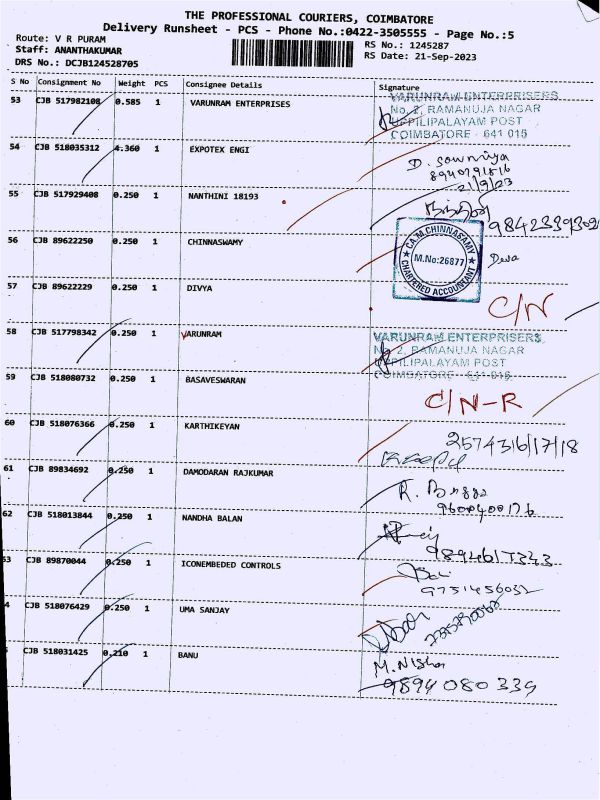 THE PROFESSIONAL COURIERS, COIMBATORE
Delivery Runsheet - PCS - Phone No.:0422-3505555 - Page No.:5
Route: V R PURAM
RS No.: 1245287
Staff: ANANTHAKUMAR
RS Date: 21-Sep-2023
DRS No.: DCJB124528705
S No Consignment No Weight PCS Consignee Details Signature
53 CJB 517982108 0.585 1 VARUNRAM ENTERPRISES
VARUNRAM ENTERPRISERS
No. 2, RAMANUJA NAGAR
UPPILIPALAYAM POST
COIMBATORE - 641 015
54 CJB 518035312 4.360 1 EXPOTEX ENGI
D. Sowmiya
8940791816
21/9/23
55 CJB 517929408 0.250 1 NANTHINI 18193
56 CJB 89622250 0.250 1 CHINNASWAMY
CA. M. CHINNASAMY
M.No:26877
CHARTERED ACCOUNTANT
Deva
57 CJB 89622229 0.250 1 DIVYA
C/N
58 CJB 517798342 0.250 1 VARUNRAM
VARUNRAM ENTERPRISERS
No. 2, RAMANUJA NAGAR
UPPILIPALAYAM POST
COIMBATORE - 641 015
59 CJB 518080732 0.250 1 BASAVESWARAN
C/N-R
60 CJB 518076366 0.250 1 KARTHIKEYAN
61 CJB 89834692 0.250 1 DAMODARAN RAJKUMAR
62 CJB 518013844 0.250 1 NANDHA BALAN
53 CJB 89870044 0.250 1 ICONEMBEDED CONTROLS
9751456032
4 CJB 518076429 0.250 1 UMA SANJAY
CJB 518031425 0.210 1 BANU
M. Nisha
9894080339